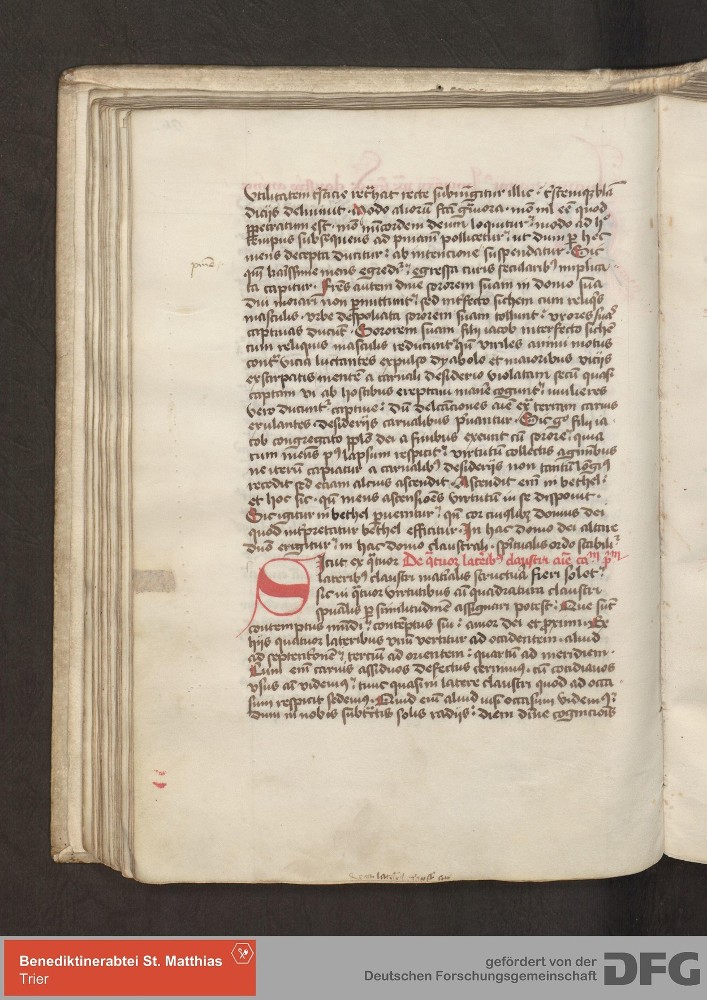 vtilitatem
diciis delinuit · Modo aliorum
perpetratum est · modo deum loquitur modo ad
tempus subsequens ad pollicetur ut dum
mens decepta ducitur ab intencione suspendatur · Sic
mens egressa curis
ta capitur · autem dine sororem suam in domo sua
diu morari non permittunt sed interfecto sichem cum
masculis · vrbe despoliata sororem suam tollunt vxores
captiuas ducunt · Sororem suam filii iacob interfecto
cum reliquis masculis reducunt viriles animi motus
contra vicia luctantes expulso dyabolo et maioribus viciis
exstirpatis mentem a carnali desiderio violatam quasi
captam vi ab hostibus ereptam cogunt mulieres
vero ducuntur captiue dum carnis
exulantes · desideriis carnalibus · Sic filii ia
cob congregato dei a finibus exeunt cum sorore quia
cum mens lapsum respicit virtutum collectis agminibus
ne iterum capiatur a carnalibus desideriis non tantum longius
recedit sed eciam alcius ascendit · Ascendit enim in bethel
et hoc sic · mens ascensiones virtutum in se disponit ·
Sic igitur in bethel peruenitur cor domus dei
quod interpretatur bethel efficitur · In hac domo dei altare
erigitur in hac domo claustrali · spiritualis ordo
Sicut ex quatuor De quatuor lateribus claustri
lateribus claustri materialis structura fieri solet
Sic in quatuor virtutibus quadratura claustri
per similitudinem assignari potest · Que sunt
contemptus mundi contemptus sui amor dei et proximi · Ex
hiis quatuor lateribus vnum vertitur ad occidentem · aliud
ad septentrionem tercium ad orientem quartum ad meridiem ·
Cum enim carnis assiduos defectus cernimus · cum cotidianos
vsus videmus tunc quasi in latere claustri quod ad occa
sum respicit sedemus · Quid enim aliud nisi occasum videmus
dum in nobis subtractis solis radiis diem diuine cognicionis
Benediktinerabtei St. Matthias
Trier
gefördert von der
Deutschen Forschungsgemeinschaft
DFG